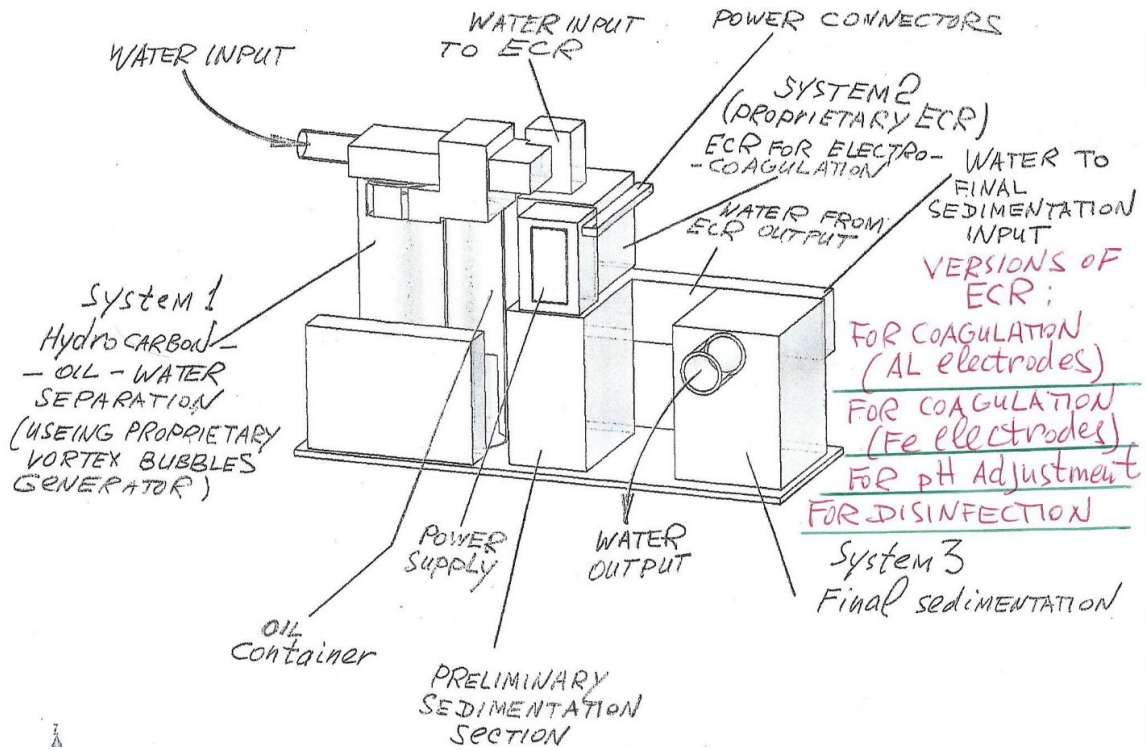 WATER INPUT
WATER INPUT
TO ECR
POWER CONNECTORS
SYSTEM 2
(PROPRIETARY ECR)
ECR FOR ELECTRO-
-COAGULATION
WATER TO
FINAL
SEDIMENTATION
INPUT
WATER FROM
ECR OUTPUT
VERSIONS OF
ECR:
FOR COAGULATION
(AL electrodes)
FOR COAGULATION
(Fe electrodes)
FOR pH Adjustment
FOR DISINFECTION
System 1
HydroCARBON-
- OIL - WATER
SEPARATION
(USEING PROPRIETARY
VORTEX BUBBLES
GENERATOR)
POWER
Supply
WATER
OUTPUT
System 3
Final sedimentation
OIL
Container
PRELIMINARY
SEDIMENTATION
SECTION
z